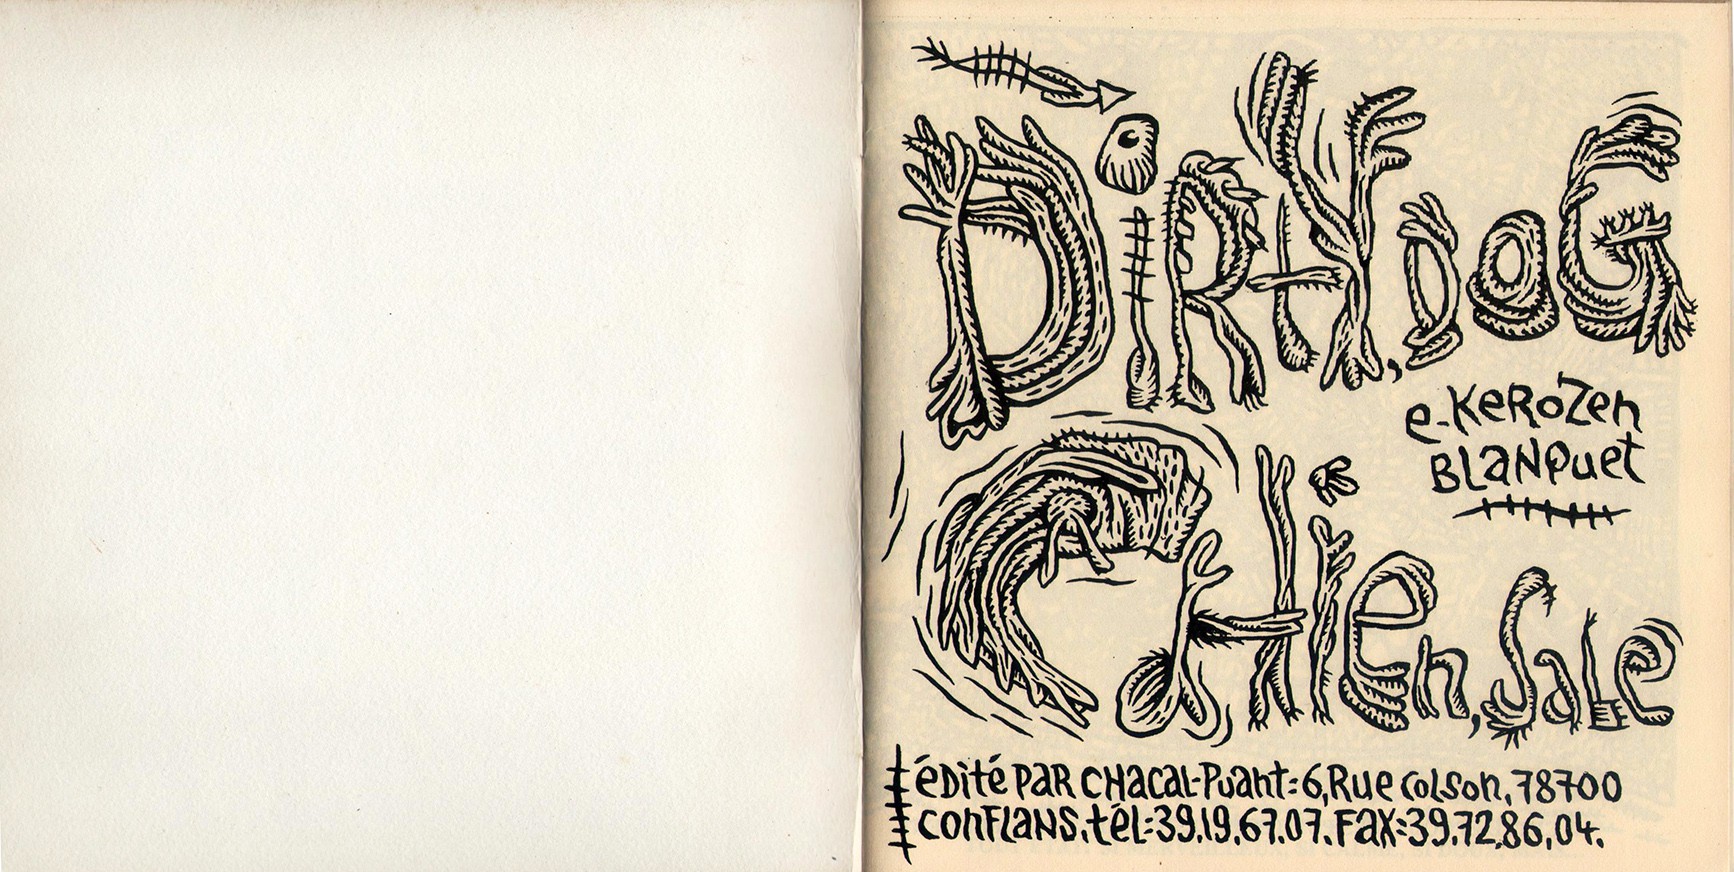 DiRtY, DOG
e-KeRoZen
BLaNQuet
CHiEn, SaLe
éDité PaR CHacaL-Puant:6,Rue coLson,78700
conFLaNS.tél:39.19.67.07.Fax:39.72.86.04.